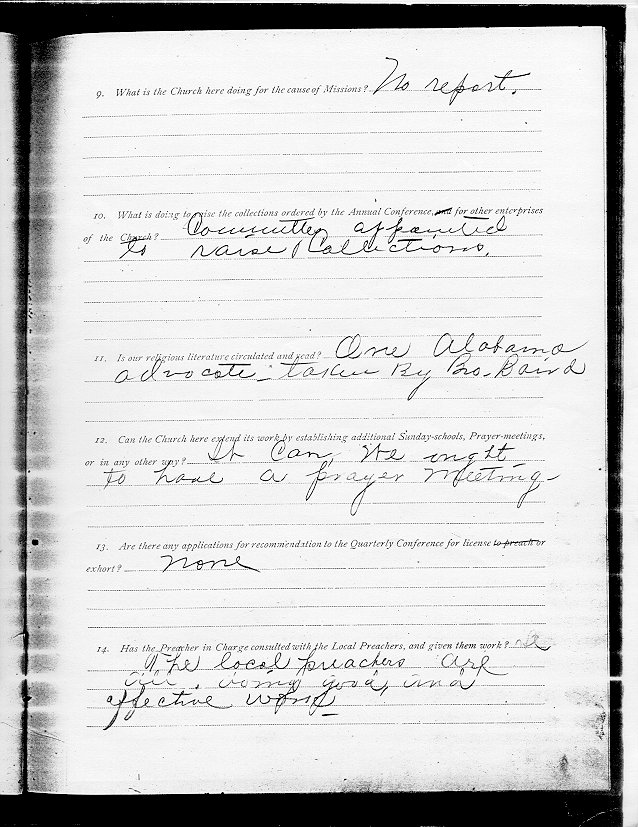 9. What is the Church here doing for the cause of Missions? No report.
10. What is doing to raise the collections ordered by the Annual Conference, and for other enterprises
of the Church? Committee appointed
to raise Collections.
11. Is our religious literature circulated and read? One Alabama
advocate - taken By Bro. Baird
12. Can the Church here extend its work by establishing additional Sunday-schools, Prayer-meetings,
or in any other way? It Can, We ought
to have a prayer Meeting-
13. Are there any applications for recommendation to the Quarterly Conference for license to preach or
exhort? none
14. Has the Preacher in Charge consulted with the Local Preachers, and given them work?
The local preachers are
doing good, and
effective work